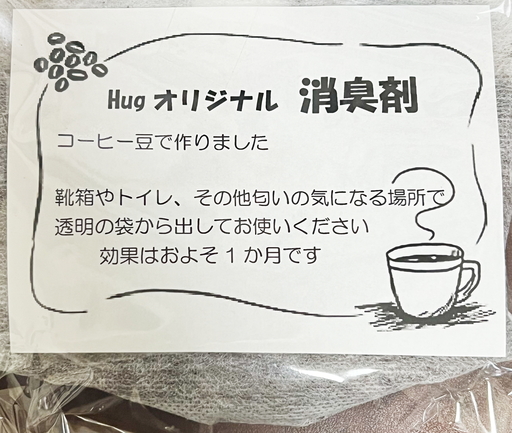 Hug オリジナル 消臭剤
コーヒー豆で作りました
靴箱やトイレ、その他匂いの気になる場所で
透明の袋から出してお使いください
効果はおよそ1か月です